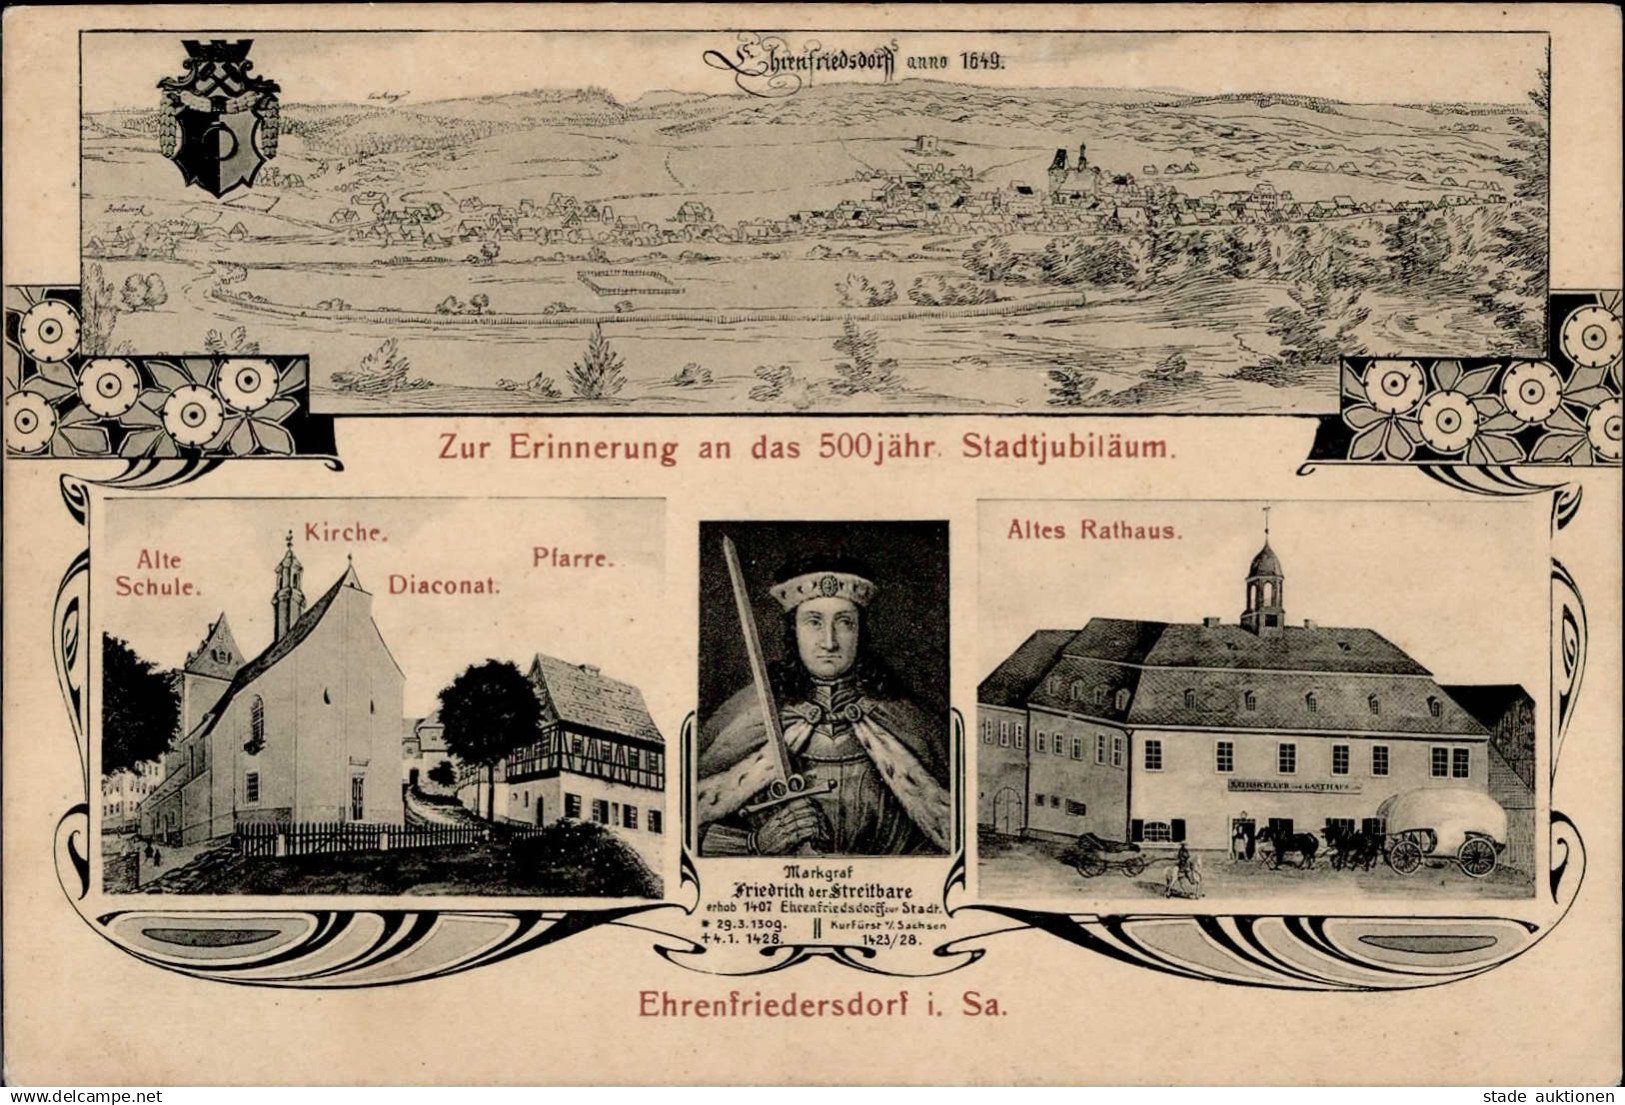 Ehrenfriedsdorff anno 1649.
Zur Erinnerung an das 500jähr. Stadtjubiläum.
Kirche.
Alte
Schule.
Diaconat.
Pfarre.
Altes Rathaus.
Markgraf
Friedrich der Streitbare
erhob 1407 Ehrenfriedsdorff zur Stadt.
* 29.3.1309. || Kurfürst v/. Sachsen
+4.1. 1428. 1423/28.
Ehrenfriedersdorf i. Sa.
www.delcampe.net
stade auktionen